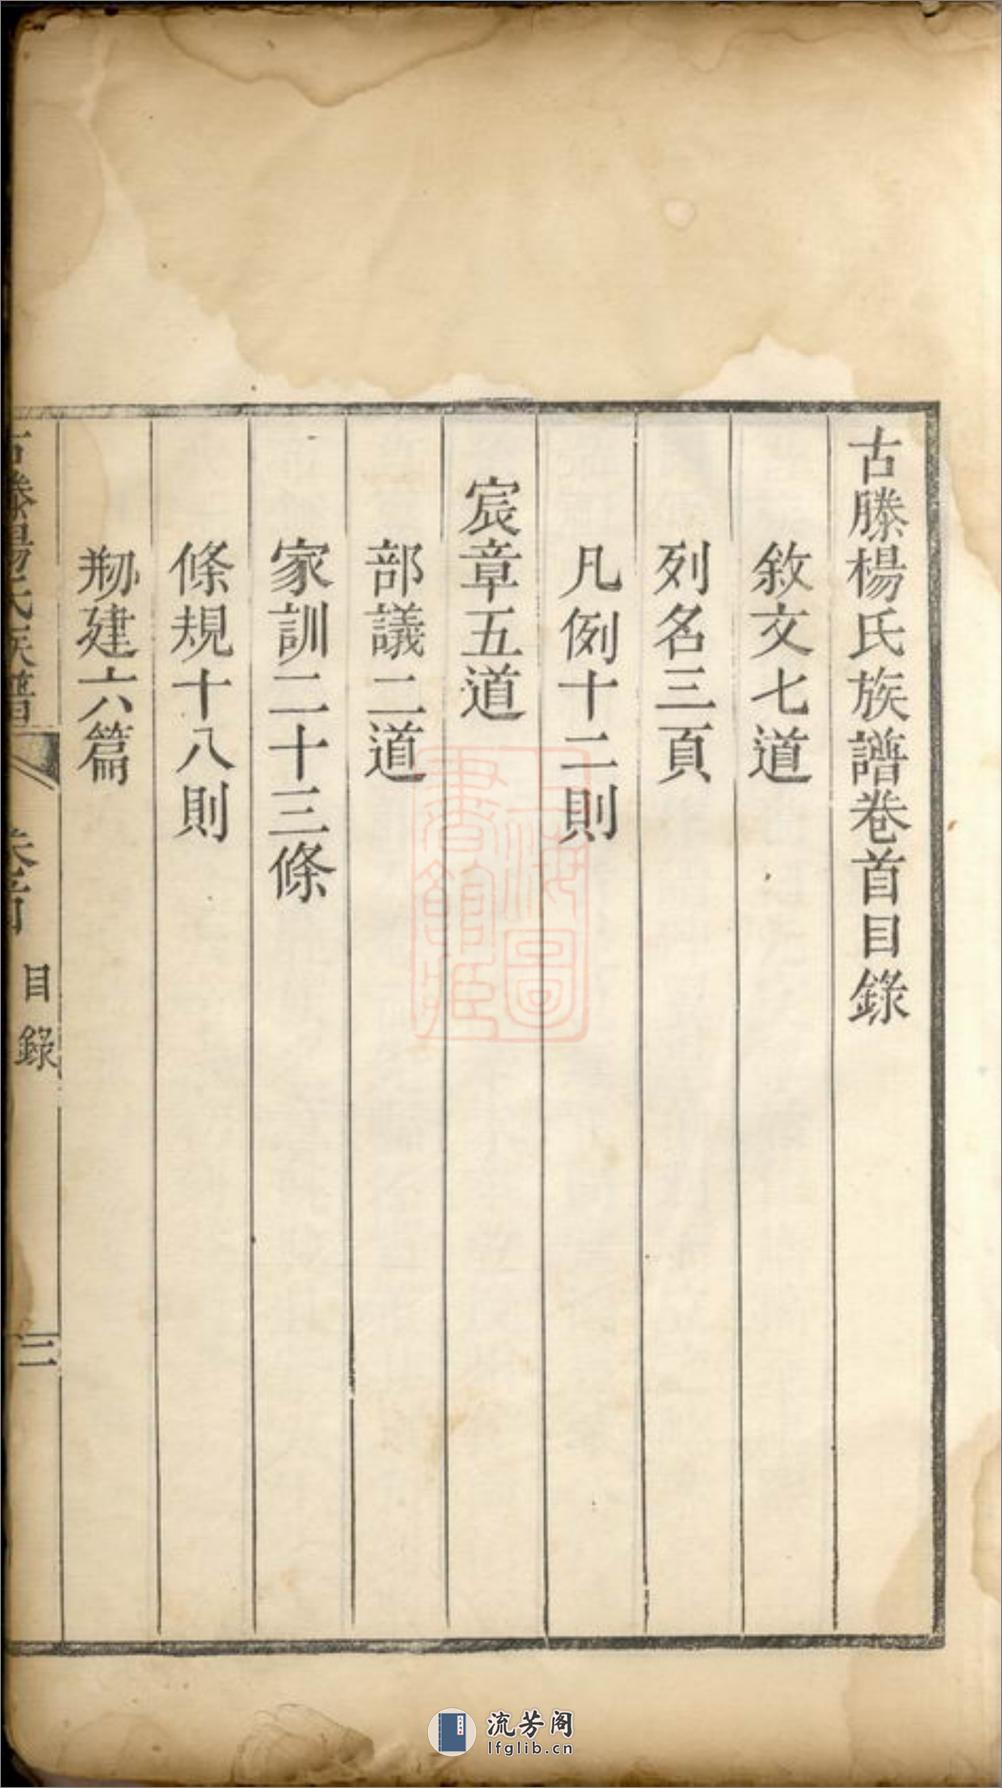 古滕楊氏族譜卷首目錄
敘文七道
列名三頁
凡例十二則
宸章五道
部議二道
家訓二十三條
條規十八則
剏建六篇
古滕楊氏族譜
卷首
目錄
二
上海圖書館藏
流芳阁
lfglib.cn